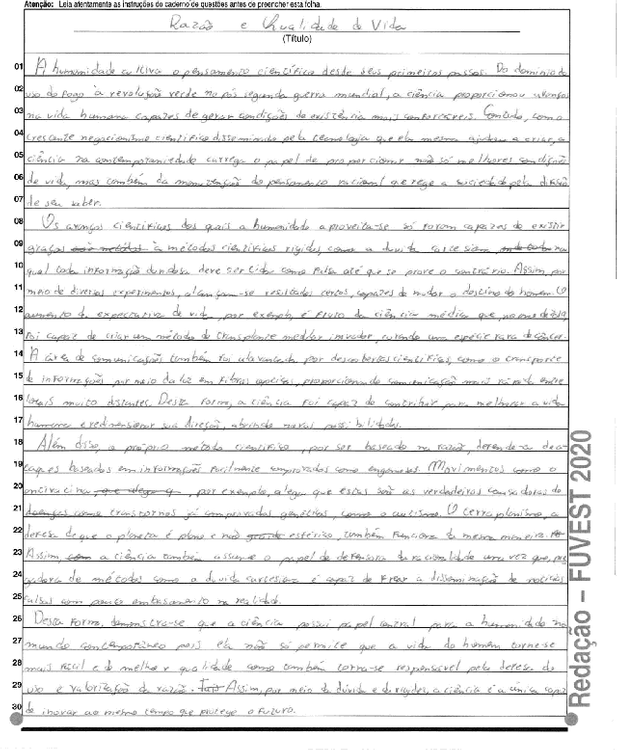 Atenção: Leia atentamente as instruções do caderno de questões antes de preencher esta folha.
Razão e Qualidade de Vida
(Título)
01 A humanidade cultiva o pensamento científico desde seus primeiros passos. Do domínio do
02 uso do fogo à revolução verde no pós segunda guerra mundial, a ciência proporcionou avanços
03 na vida humana capazes de gerar condições de existência mais confortáveis. Contudo, com o
04 crescente negacionismo científico disseminado pela tecnologia que ela mesma ajudou a criar, a
05 ciência na contemporaneidade carrega o papel de proporcionar não só melhores condições
06 de vida, mas também da manutenção do pensamento racional que rege a sociedade pela difusão
07 de seu saber.
08 Os avanços científicos dos quais a humanidade aproveita-se só foram capazes de existir
09 graças à métodos científicos rígidos, como a duvida carcesiana, na
10 qual toda informação duvidosa deve ser tida como falsa até que se prove o contrário. Assim, por
11 meio de diversos experimentos, alcançam-se resultados certos, capazes de mudar o destino do homem. O
12 aumento da expectativa de vida, por exemplo, é fruto da ciência médica que, no ano de
13 foi capaz de criar um método de transplante medular inovador, curando uma espécie rara de câncer.
14 A área de comunicações também foi alavancada por descobertas científicas, como o transporte
15 de informações por meio da luz em fibras opticas, proporcionando comunicação mais rápida entre
16 locais muito distantes. Desta forma, a ciência foi capaz de contribuir para melhorar a vida
17 humana e redimensionar sua direção, abrindo novas possibilidades.
18 Além disso, o próprio método científico, por ser baseado na razão, defende-a de a-
19 taques baseados em informações facilmente comprovadas como enganosas. Movimentos como o
20 antivacina, por exemplo, alega que estas são as verdadeiras causadoras de
21 transtornos já comprovados genéticos, como o autismo. O terraplanismo, a
22 defesa de que o planeta é plano e não esférico, também funciona da mesma maneira.
23 Assim, a ciência também assume o papel de defensora da racionalidade uma vez que,
24 de métodos como a duvida cartesiana é capaz de frear a disseminação de notícias
25 falsas com pouco embasamento na realidade.
26 Desta forma, demonstra-se que a ciência possui papel central para a humanidade no
27 mundo contemporâneo pois ela não só permite que a vida do homem torne-se
28 mais fácil e de melhor qualidade como também torna-se responsável pela defesa do
29 uso e valorização da razão. Assim, por meio da dúvida e da rigidez, a ciência é a única capaz
30 de inovar ao mesmo tempo que protege o futuro.
Redação – FUVEST 2020